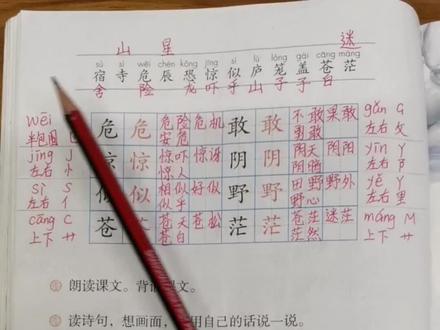 山 星 迷
sù sì wēi chén kǒng jīng sì lú lóng gài cāng máng
宿 寺 危 辰 恐 惊 似 庐 笼 盖 苍 茫
舍 险 龙 吓 乎 山 子 子 白
wēi 危 危 危险 危机 安危 敢 敢 不敢 果敢 勇敢 gǎn G
半包围 左右 攵
jīng J 惊 惊 惊吓 惊讶 惊人 阴 阴 阴天 阴阳 阴晴 yīn Y
左右 忄 左右 阝
sì S 似 似 相似 好似 似乎 野 野 田野 野外 野心 yě Y
左右 亻 左右 里
cāng C 苍 苍 苍天 苍松 苍白 茫 茫 苍茫 迷茫 茫然 máng M
上下 艹 上下 艹
朗读课文。背 课文。
读诗句,想画面, 用自己的话说一说。